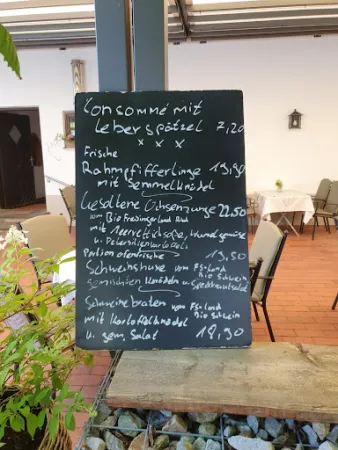 Consommé mit
Leberspätzel 7,20
x x x
Frische
Rahmpfifferlinge 19,90
mit Semmelknödel
Gesottene Ochsenzunge 22.50
vom Bio Freisinger Land
mit Meerrettichsoße, Wurzelgemüse
u. Petersilienkartoffeln
Portion ofenfrische 19,50
Schweinshaxe vom FS-Land
Bio Schwein
gemischten Knödeln u. Speckkrautsalat
Schweinebraten vom FS-Land
Bio Schwein
mit Kartoffelknödel
u. gem. Salat 18,90